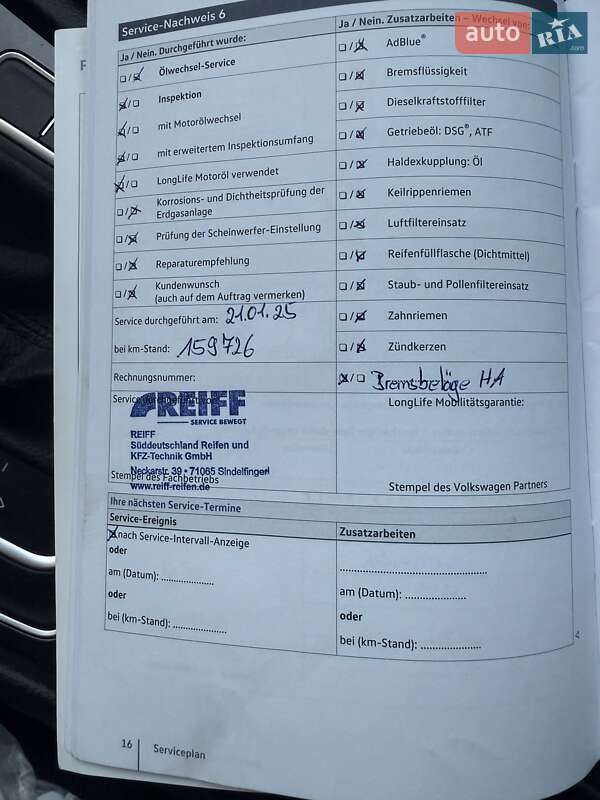 Service-Nachweis 6
Ja / Nein. Durchgeführt wurde:
Ölwechsel-Service
Inspektion
mit Motorölwechsel
mit erweitertem Inspektionsumfang
LongLife Motoröl verwendet
Korrosions- und Dichtheitsprüfung der
Erdgasanlage
Prüfung der Scheinwerfer-Einstellung
Reparaturempfehlung
Kundenwunsch
(auch auf dem Auftrag vermerken)
Service durchgeführt am: 21.01.25
bei km-Stand: 159726
Rechnungsnummer:
Service durchgeführt von:
REIFF
SERVICE BEWEGT
REIFF
Süddeutschland Reifen und
KFZ-Technik GmbH
Neckarstr. 39 • 71065 Sindelfingen
Stempel des Fachbetriebs
www.reiff-reifen.de
Ja / Nein. Zusatzarbeiten – Wechsel von:
AdBlue®
Bremsflüssigkeit
Dieselkraftstofffilter
Getriebeöl: DSG®, ATF
Haldexkupplung: Öl
Keilrippenriemen
Luftfiltereinsatz
Reifenfüllflasche (Dichtmittel)
Staub- und Pollenfiltereinsatz
Zahnriemen
Zündkerzen
Bremsbeläge HA
LongLife Mobilitätsgarantie:
Stempel des Volkswagen Partners
Ihre nächsten Service-Termine
Service-Ereignis
nach Service-Intervall-Anzeige
oder
am (Datum): .....................
oder
bei (km-Stand): .....................
Zusatzarbeiten
..................................................
am (Datum): .....................
oder
bei (km-Stand): .....................
16
Serviceplan
auto RIA
.com